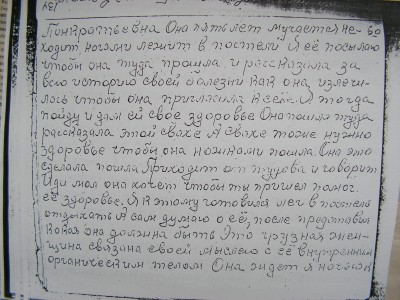 Панкратьевна Она пять лет мучается не хо
ходит, ногами лежит в постели Я её посылаю
чтобы она туда пошла и рассказала за
всю историю своей болезни как она излечи-
лась чтобы она пригласила к себе. Я тогда
пойду и дам ей свое здоровье Она пошла туда
рассказала этой свахе А свахе тоже нужно
здоровье чтобы она ножками пошла. Она это
сделала пошла Приходит от туда и говорит
Иди мол она хочет чтобы ты пришел помог
её здоровье. Я к этому готовился лег в постель
отдыхать А сам думаю о её, после представил
какая она должна быть Это грузная жен-
щина связана своей мыслею с её внутренним
органическим телом Она ждет я начал